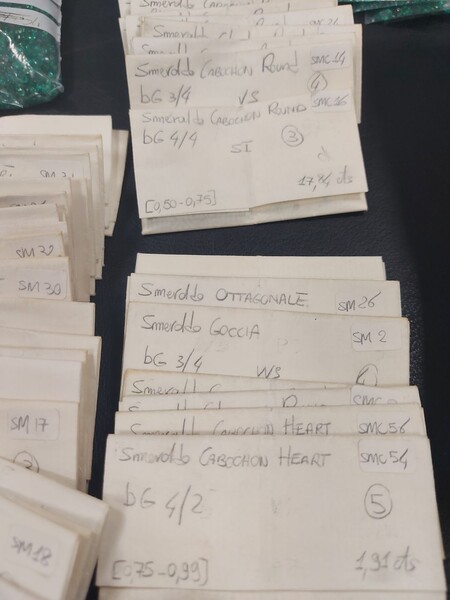 Smeraldo CABOCHON Round SMC 14
bG 3/4 VS 4
Smeraldo CABOCHON ROUND SMC 16
bG 4/4 SI 3
17,84 cts
[0,50-0,75]
SM 32
SM 30
SM 17
SM 18
Smeraldo OTTAGONALE SM 26
Smeraldo GOCCIA SM 2
bG 3/4 VVS
Smeraldo
Smeraldo CABOCHON HEART SMC 56
Smeraldo CABOCHON HEART SMC 54
bG 4/2 5
[0,75-0,99] 1,91 cts